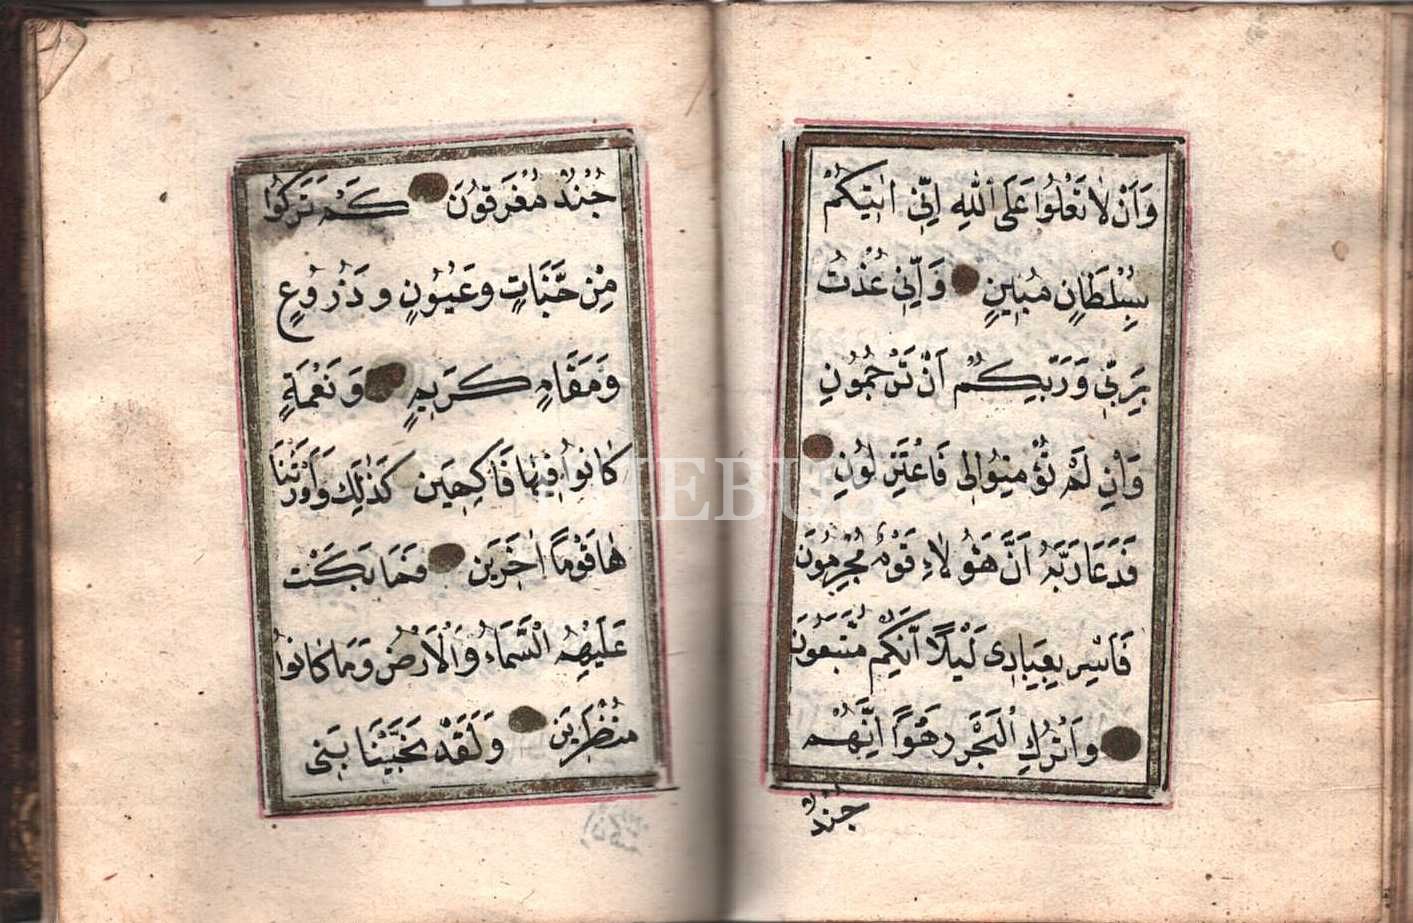 وَاَنْ لَا تَعْلُوا عَلَى اللّٰهِ اِنّٖي اٰتٖيكُمْ
بِسُلْطَانٍ مُبٖينٍ وَاِنّٖي عُذْتُ
بِرَبّٖي وَرَبِّكُمْ اَنْ تَرْجُمُونِ
وَاِنْ لَمْ تُؤْمِنُوا لٖي فَاعْتَزِلُونِ
فَدَعَا رَبَّهُ اَنَّ هٰؤُلَاءِ قَوْمٌ مُجْرِمُونَ
فَاَسْرِ بِعِبَادٖي لَيْلًا اِنَّكُمْ مُتَّبَعُونَ
وَاتْرُكِ الْبَحْرَ رَهْوًا اِنَّهُمْ
جُنْدٌ
جُنْدٌ مُغْرَقُونَ كَمْ تَرَكُوا
مِنْ جَنَّاتٍ وَعُيُونٍ وَزُرُوعٍ
وَمَقَامٍ كَرٖيمٍ وَنَعْمَةٍ
كَانُوا فٖيهَا فَاكِهٖينَ كَذٰلِكَ وَاَوْرَثْنَا
هَا قَوْمًا اٰخَرٖينَ فَمَا بَكَتْ
عَلَيْهِمُ السَّمَاءُ وَالْاَرْضُ وَمَا كَانُوا
مُنْظَرٖينَ وَلَقَدْ نَجَّيْنَا بَنٖي